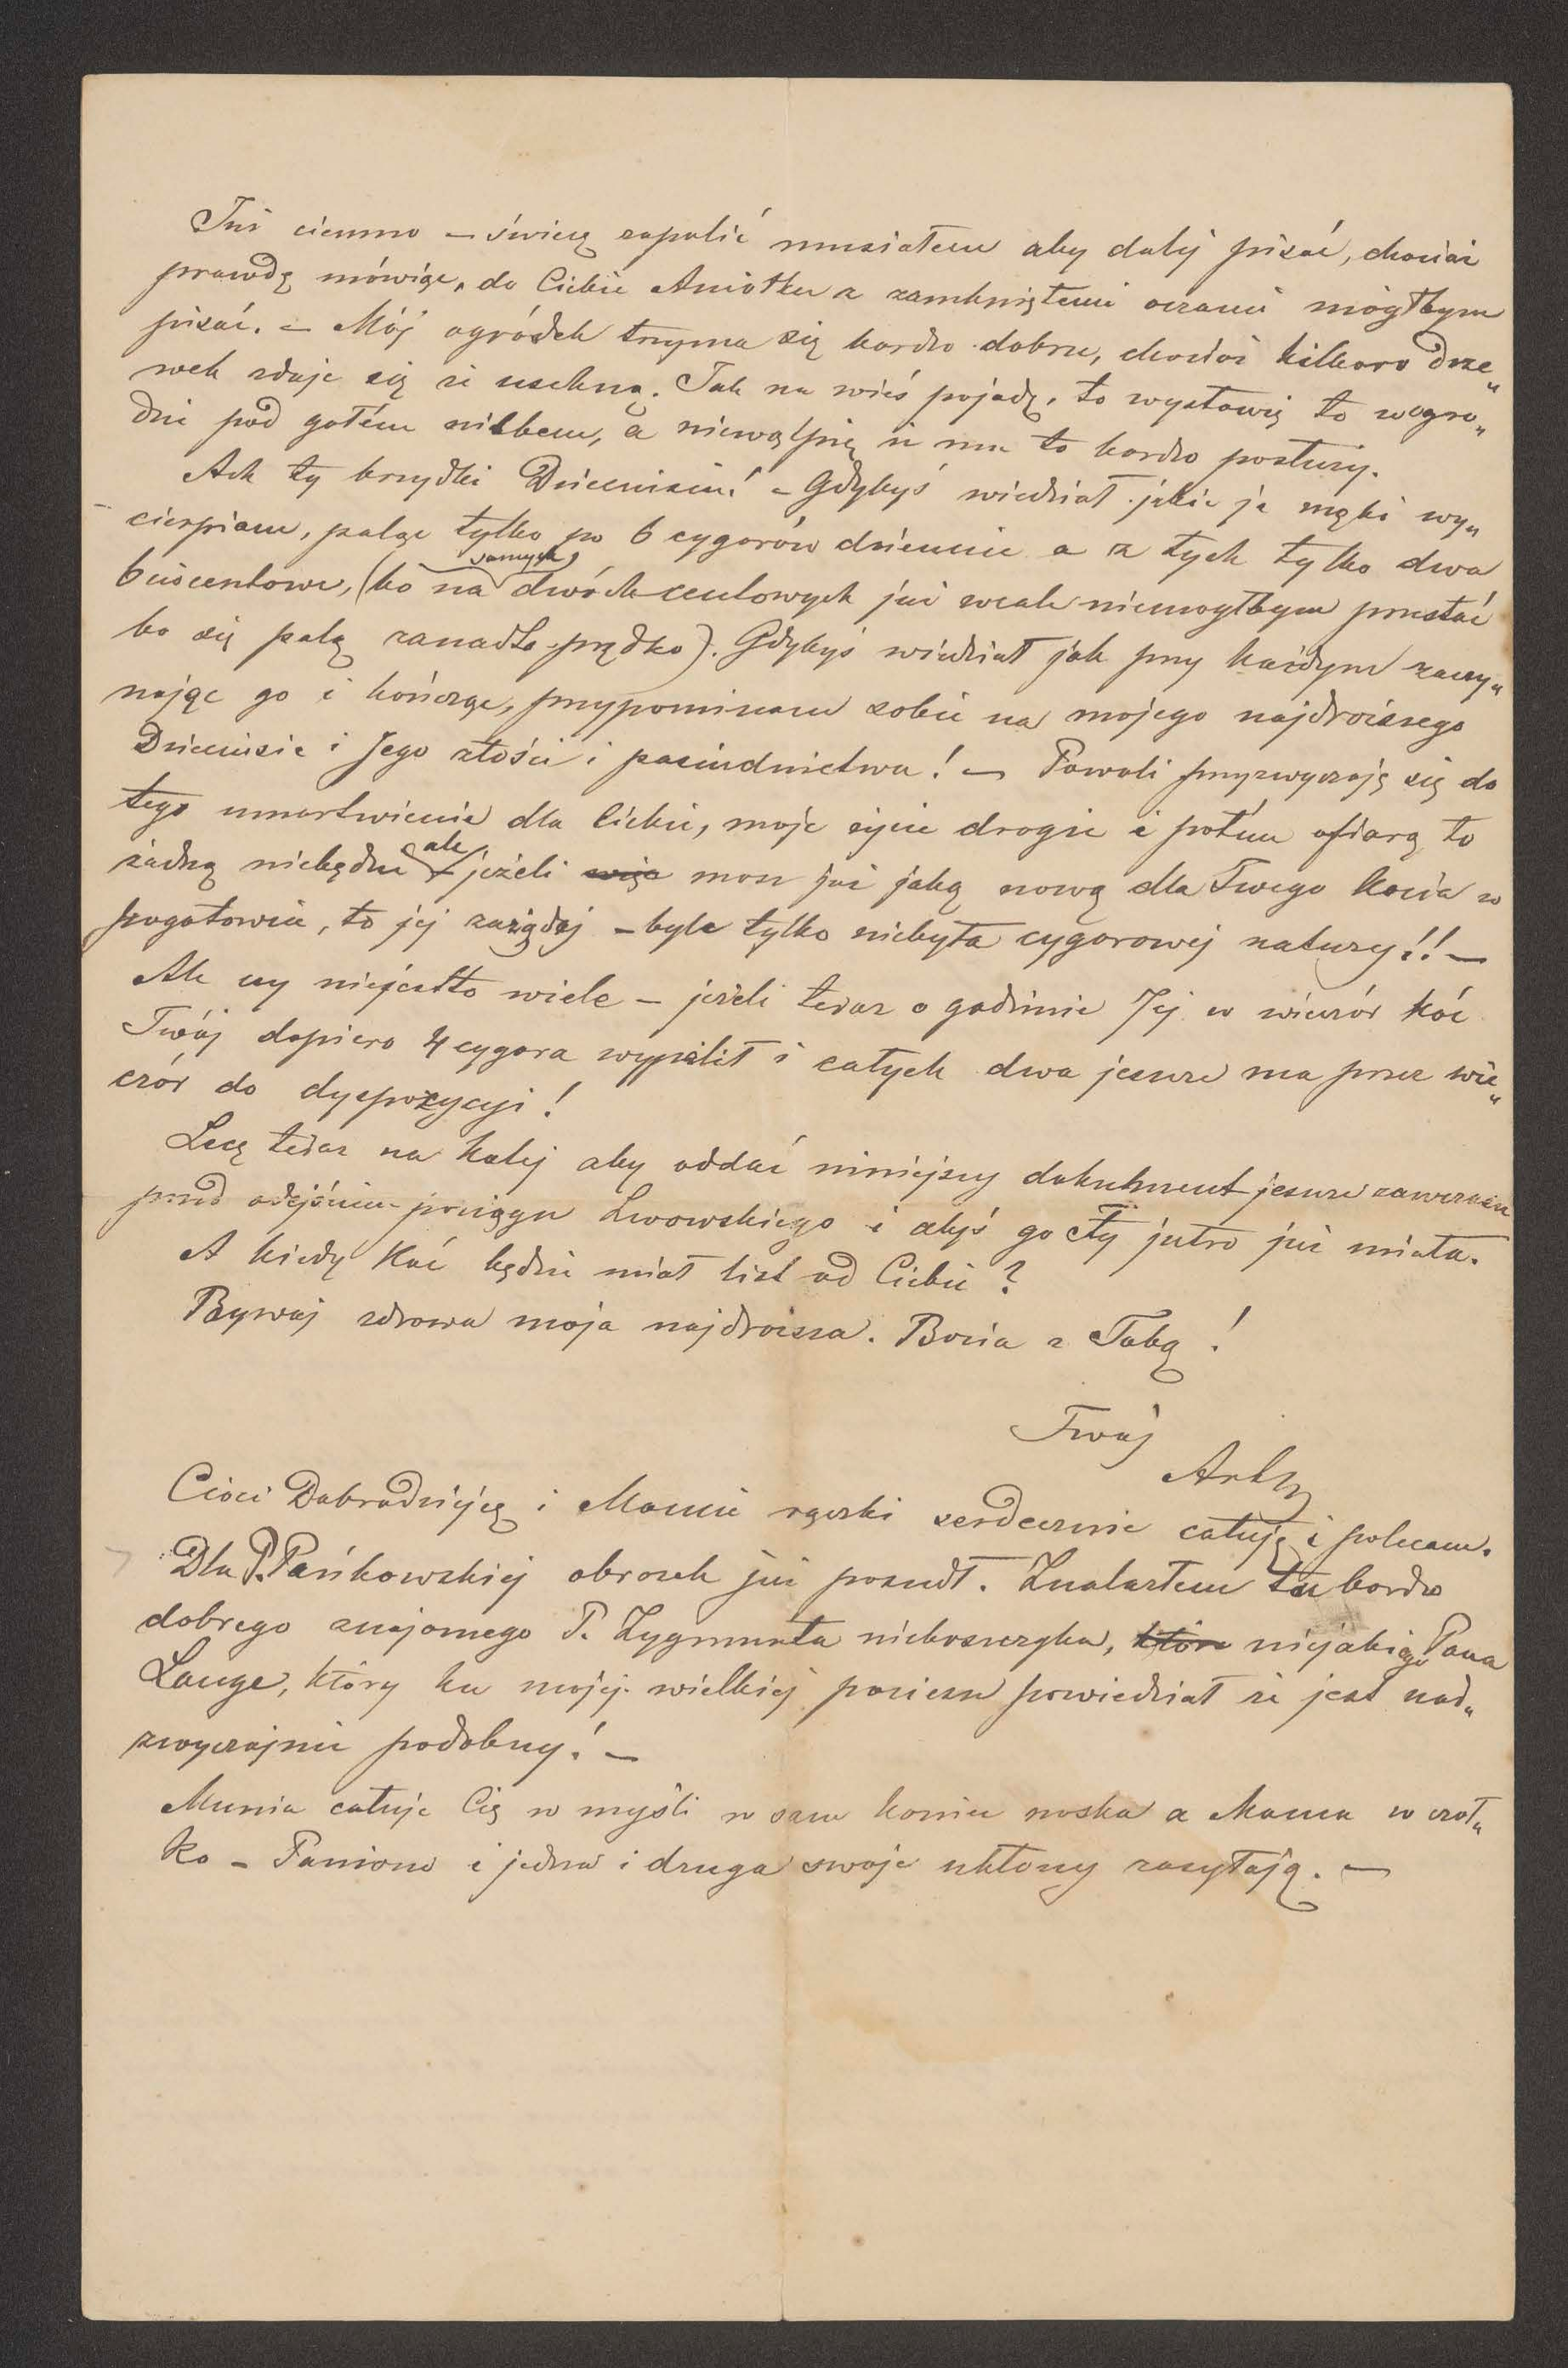 Już ciemno – świecę zapalić musiałem aby dalej pisać, chociaż
prawdę mówiąc, do Ciebie Aniołku z zamkniętemi oczami mógłbym
pisać. – Mój ogródek trzyma się bardzo dobrze, chociaż kilkoro drze„
wek zdaje się że uschną. Jak na wieś pojadę, to wystawię to w ogro„
dzie pod gołém niebem, a niewątpię że mu to bardzo posłuży.
Ach ty brzydki Dzieciusiu! – Gdybyś wiedział jakie ja męki wy„
cierpiam, paląc tylko po 6 cygarów dziennie a z tych tylko dwa
6cio centowe, (bo na samych dwóch centowych już wcale niemogłbym przestać
bo się palą zanadto prędko). Gdybyś wiedział jak przy każdym zaczy„
nając go i kończąc, przypominam sobie na mojego najdroższego
Dzieciusia i Jego złości i paskudnictwa! – Powoli przyzwyczaję się do
tego umartwienia dla Ciebie, moje życie drogie i potém ofiarą to
żadną niebędzie ale jeżeli masz już jaką nową dla Twego Kocia w
pogotowiu, to jej zażądaj – byle tylko niebyła cygarowej natury!! –
Ale czy niejestto wiele – jeżeli teraz o godzinie 7ej w wieczór Koć
Twój dopiero 4 cygara wypalił i całych dwa jeszcze ma przez wie„
czór do dyspozycyi!
Lecę teraz na kolej aby oddać niniejszy dokument jeszcze zawczasu
przed odejściem pociągu Lwowskiego i abyś go Ty jutro już miała.
A kiedy Koć będzie miał list od Ciebie?
Bywaj zdrowa moja najdroższa. Bozia z Tobą!
Twój
Artur
Cioci Dobrodziejcę i Mamie rączki serdecznie całuję i polecam.
Dla P. Pańkowskiej obrazek już poszedł. Znalazłem tu bardzo
dobrego znajomego P. Zygmunta nieboszczyka, które niejakiego Pana
Lange, który ku mojej wielkiej pociesze powiedział że jest nad„
zwyczajnie podobny! –
Munia całuje Cię w myśli w sam koniec noska a Mama w czoł„
ko – Paniom i jedna i druga swoje ukłony zasyłają. –